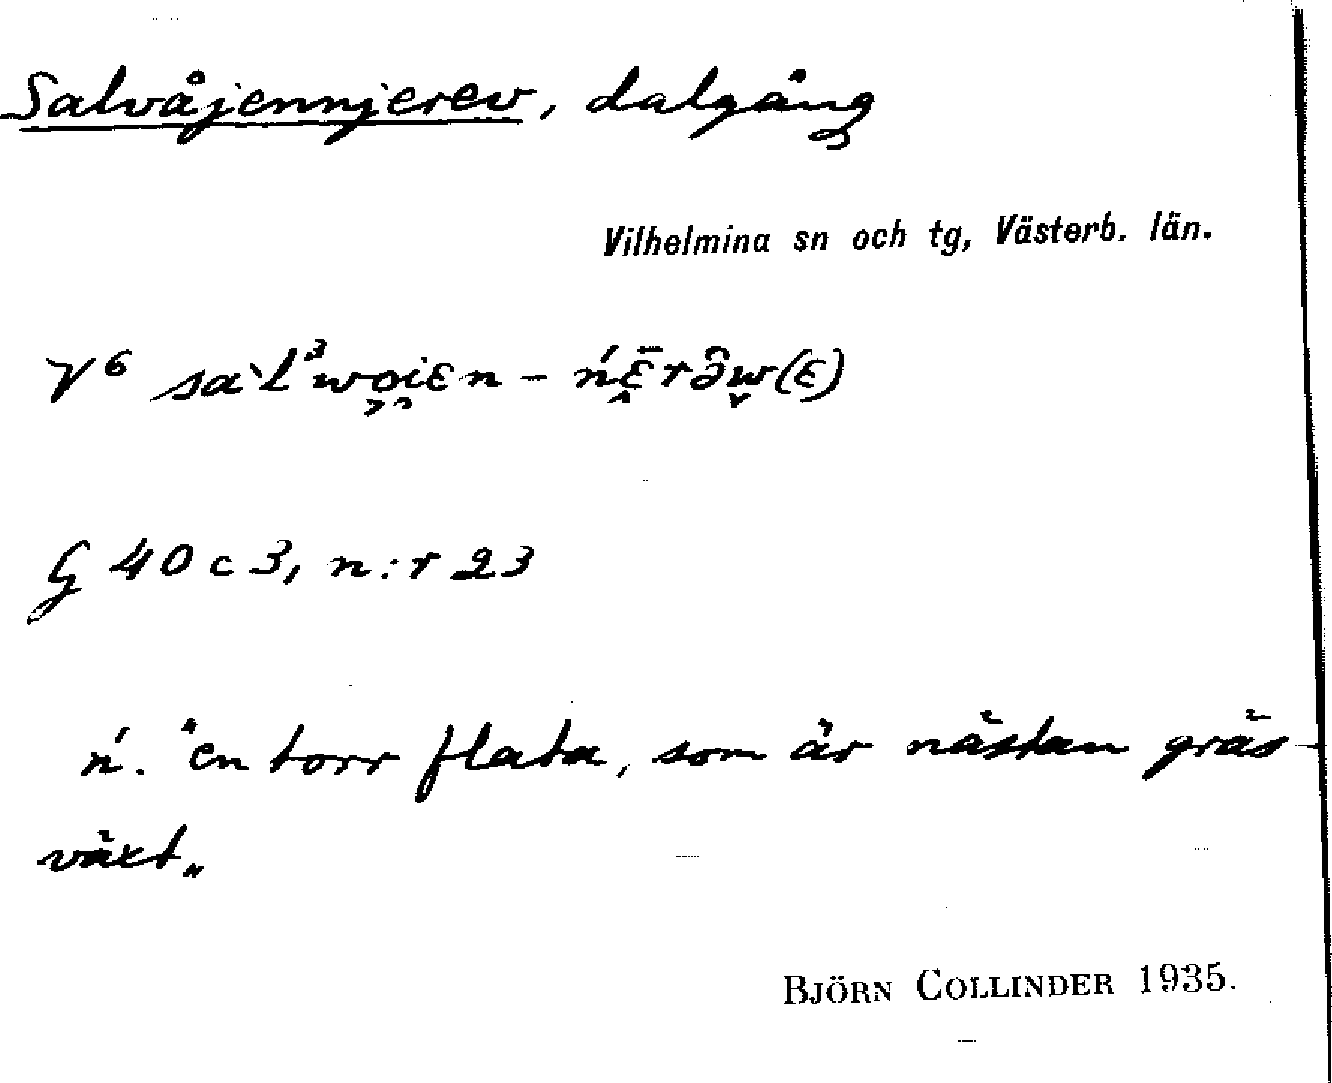 Salvåjennjerev, dalgång
Vilhelmina sn och tg, Västerb. län.
V⁶ sa`l³wo̭i̭ɛn - ńɛ̭̄rə̑w̬(ɛ)
G 40 c 3, n:r 23
ń. "en torr flata, som är nästan gräs-
växt„
BJÖRN COLLINDER 1935.